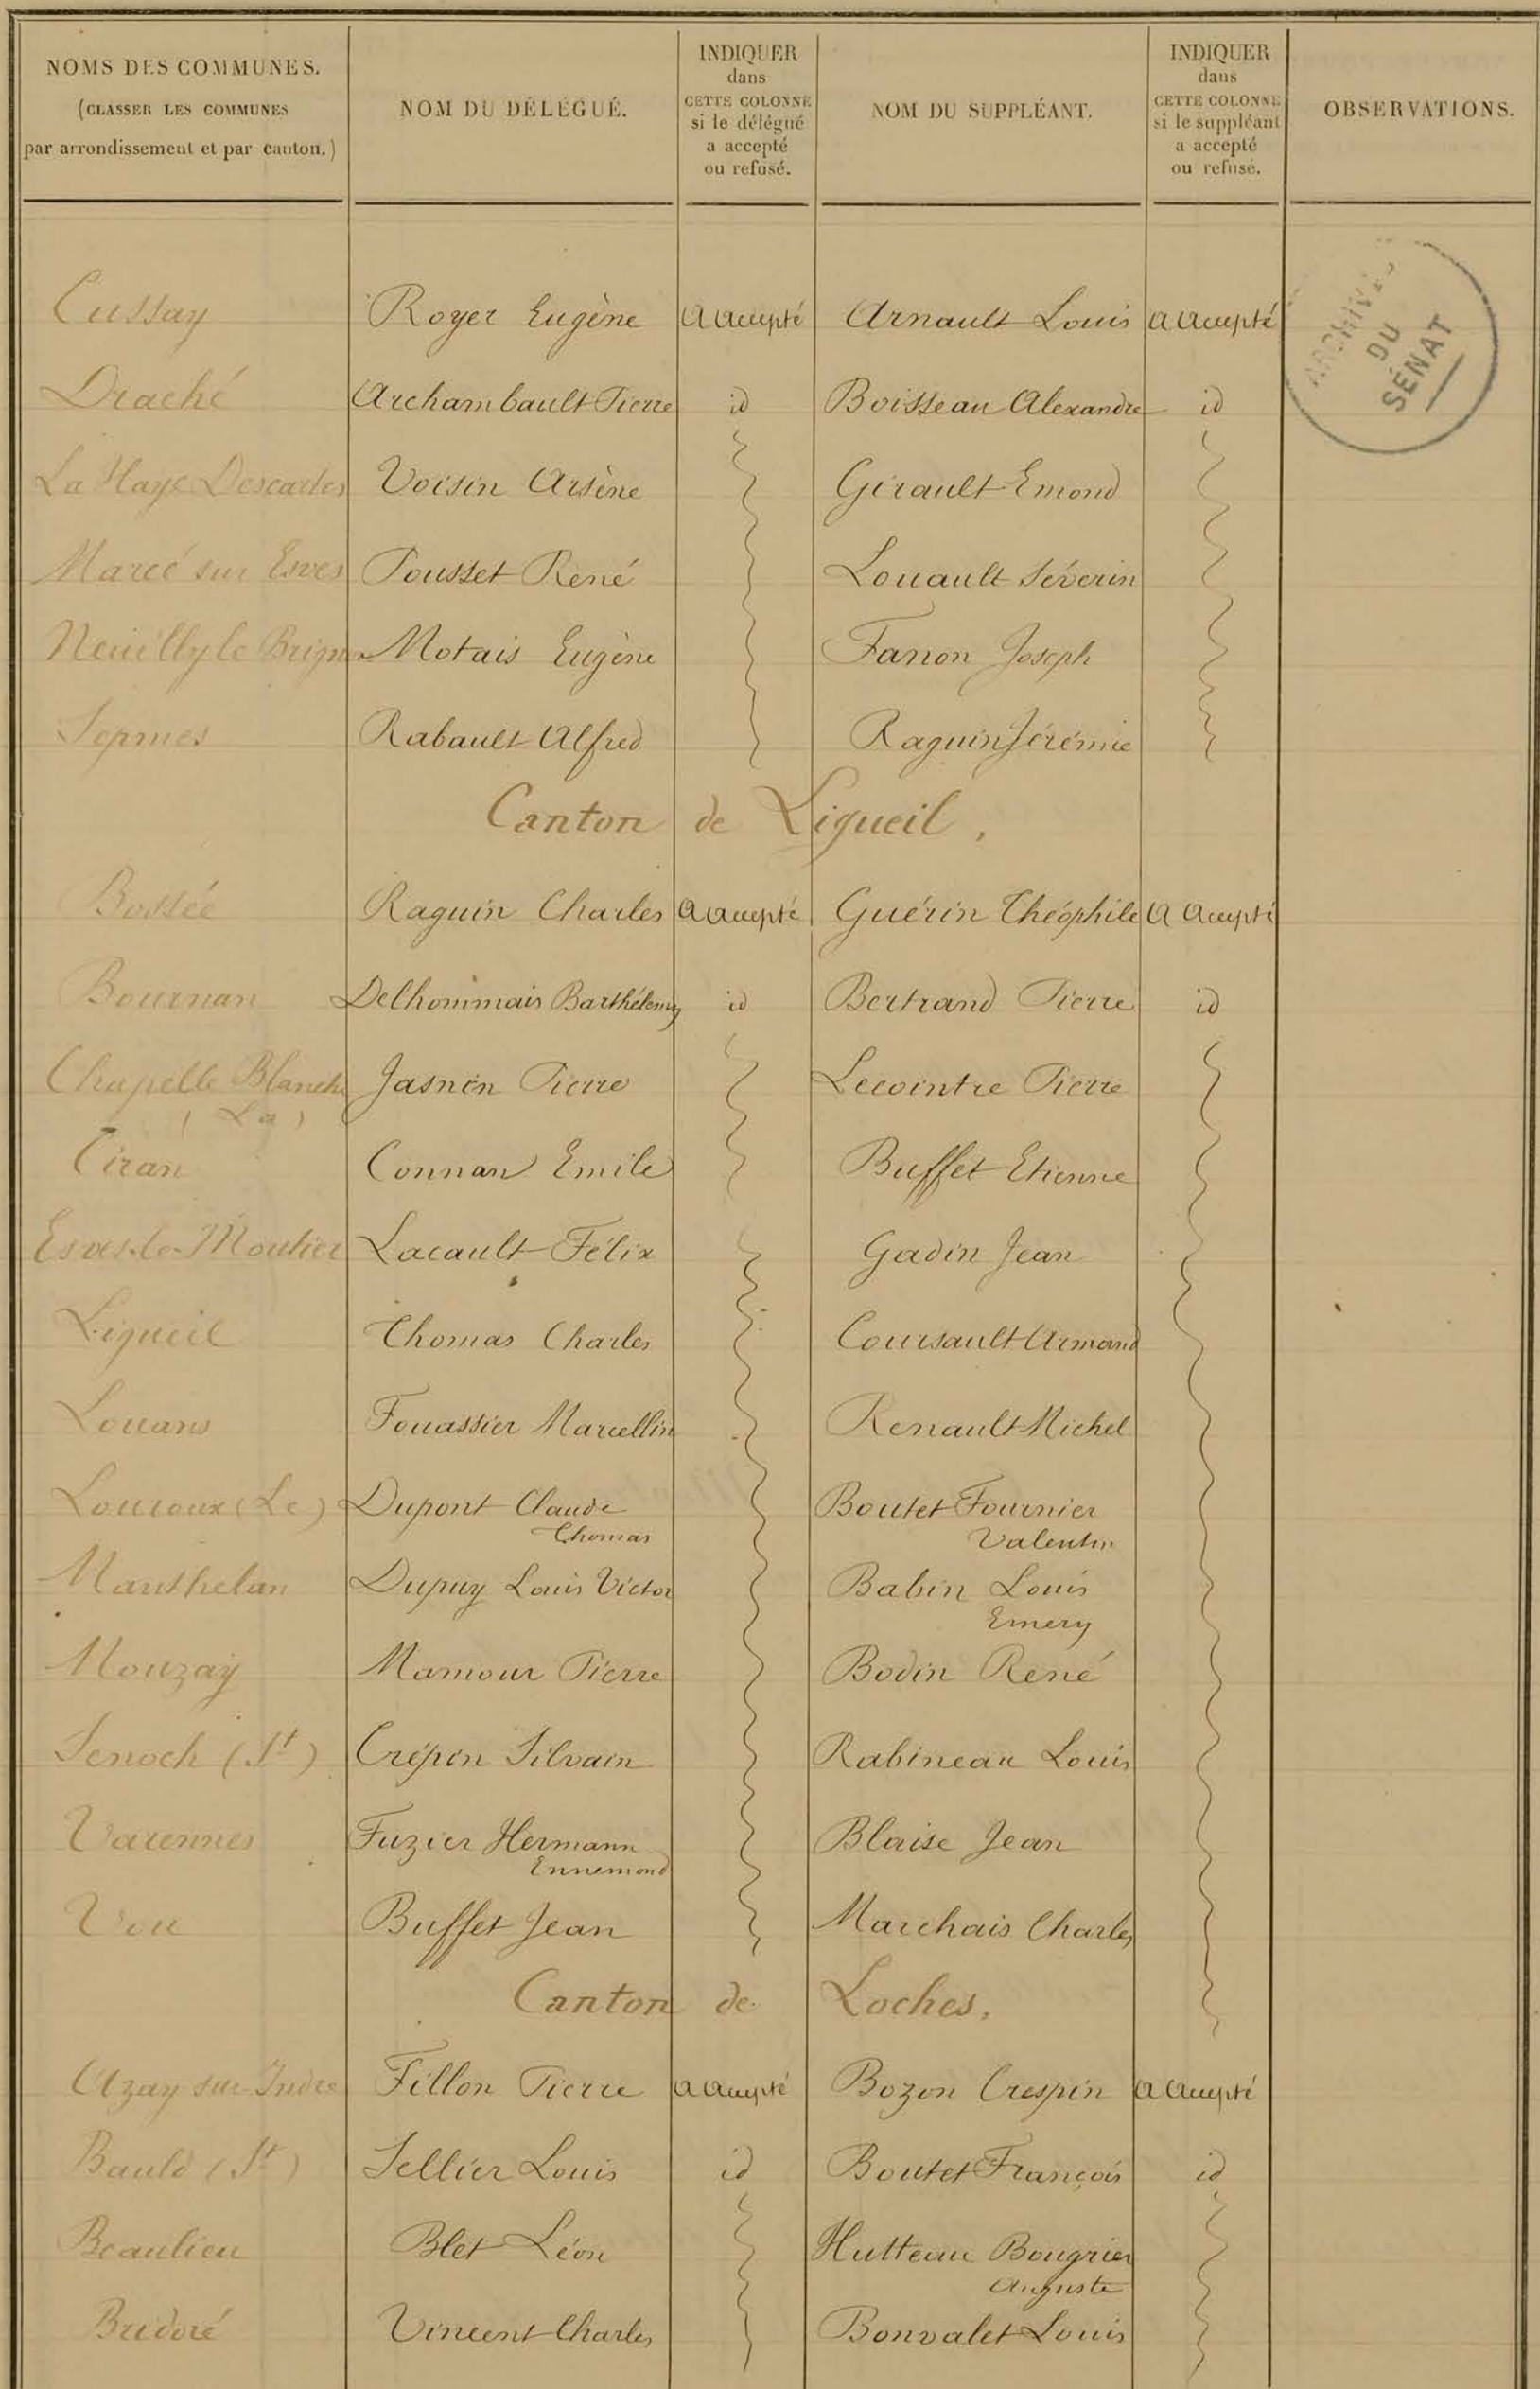 NOMS DES COMMUNES.
(CLASSER LES COMMUNES
par arrondissement et par canton.)
NOM DU DÉLÉGUÉ.
INDIQUER
dans
CETTE COLONNE
si le délégué
a accepté
ou refusé.
NOM DU SUPPLÉANT.
INDIQUER
dans
CETTE COLONNE
si le suppléant
a accepté
ou refusé.
OBSERVATIONS.
ARCHIVES
DU
SÉNAT
Cussay Royer Eugène a accepté Arnault Louis a accepté
Draché Archambault Pierre id Boisseau Alexandre id
La Haye Descartes Voisin Arsène Girault Emond
Marcé sur Esves Pousset René Louault Séverin
Neuilly le Brignon Motais Eugène Fanon Joseph
Sepmes Rabault Alfred Raguin Jérémie
Canton de Ligueil.
Bossée Raguin Charles a accepté Guérin Théophile a accepté
Bournan Delhommais Barthélemy id Bertrand Pierre id
Chapelle Blanche Jasnin Pierre Lecointre Pierre
(La)
Ciran Connan Emile Buffet Etienne
Esves-le-Moutier Lacault Félix Gadin Jean
Ligueil Thomas Charles Coursault Armand
Louans Fouassier Marcellin Renault Michel
Louroux (Le) Dupont Claude Boutet Fournier
Thomas Valentin
Manthelan Dupuy Louis Victor Babin Louis
Emery
Mouzay Mamour Pierre Bodin René
Senoch (St) Crépin Silvain Rabineau Louis
Varennes Fuzier Hermann Blaise Jean
Ennemond
Vou Buffet Jean Marchais Charles
Canton de Loches.
Azay sur Indre Fillon Pierre a accepté Bozon Crespin a accepté
Bauld (St) Sellier Louis id Boutet François id
Beaulieu Blet Léon Hutteau Bougrier
Auguste
Bridoré Vincent Charles Bonvalet Louis